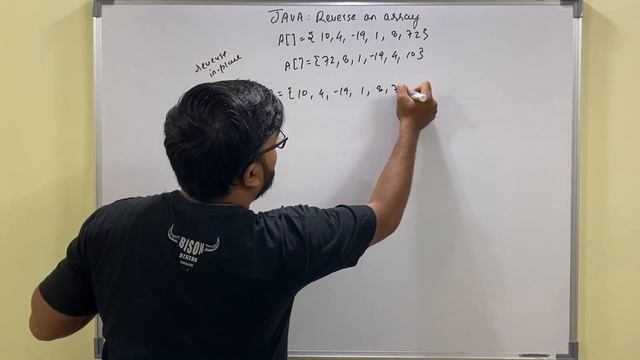 JAVA: Reverse an array
A[] = {10, 4, -19, 1, 8, 72}
A[] = {72, 8, 1, -19, 4, 10}
reverse
in-place
= {10, 4, -19, 1, 8, 7
BISON
BIKING